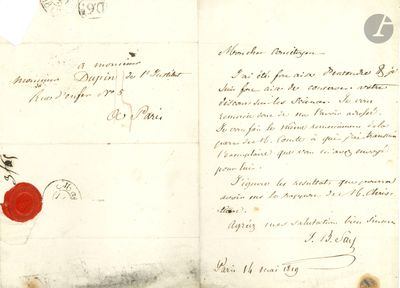 D69
a monsieur
monsieur Dupin de l'Institut
Rue d'enfer N° 5
a Paris
Mon cher concitoyen
J'ai été fort aise d'entendre & je
suis fort aise de conserver votre
discours sur les sciences. Je vous
remercie de me l'avoir adressé.
Je vous fais le même remerciement de la
part de M. Comte à qui j'ai transmis
l'exemplaire que vous m'avez envoyé
pour lui.
J'ignore les resultats que pourront
avoir
Agréez mes salutations bien sinceres
J. B. Say
Paris 14 mai 1819